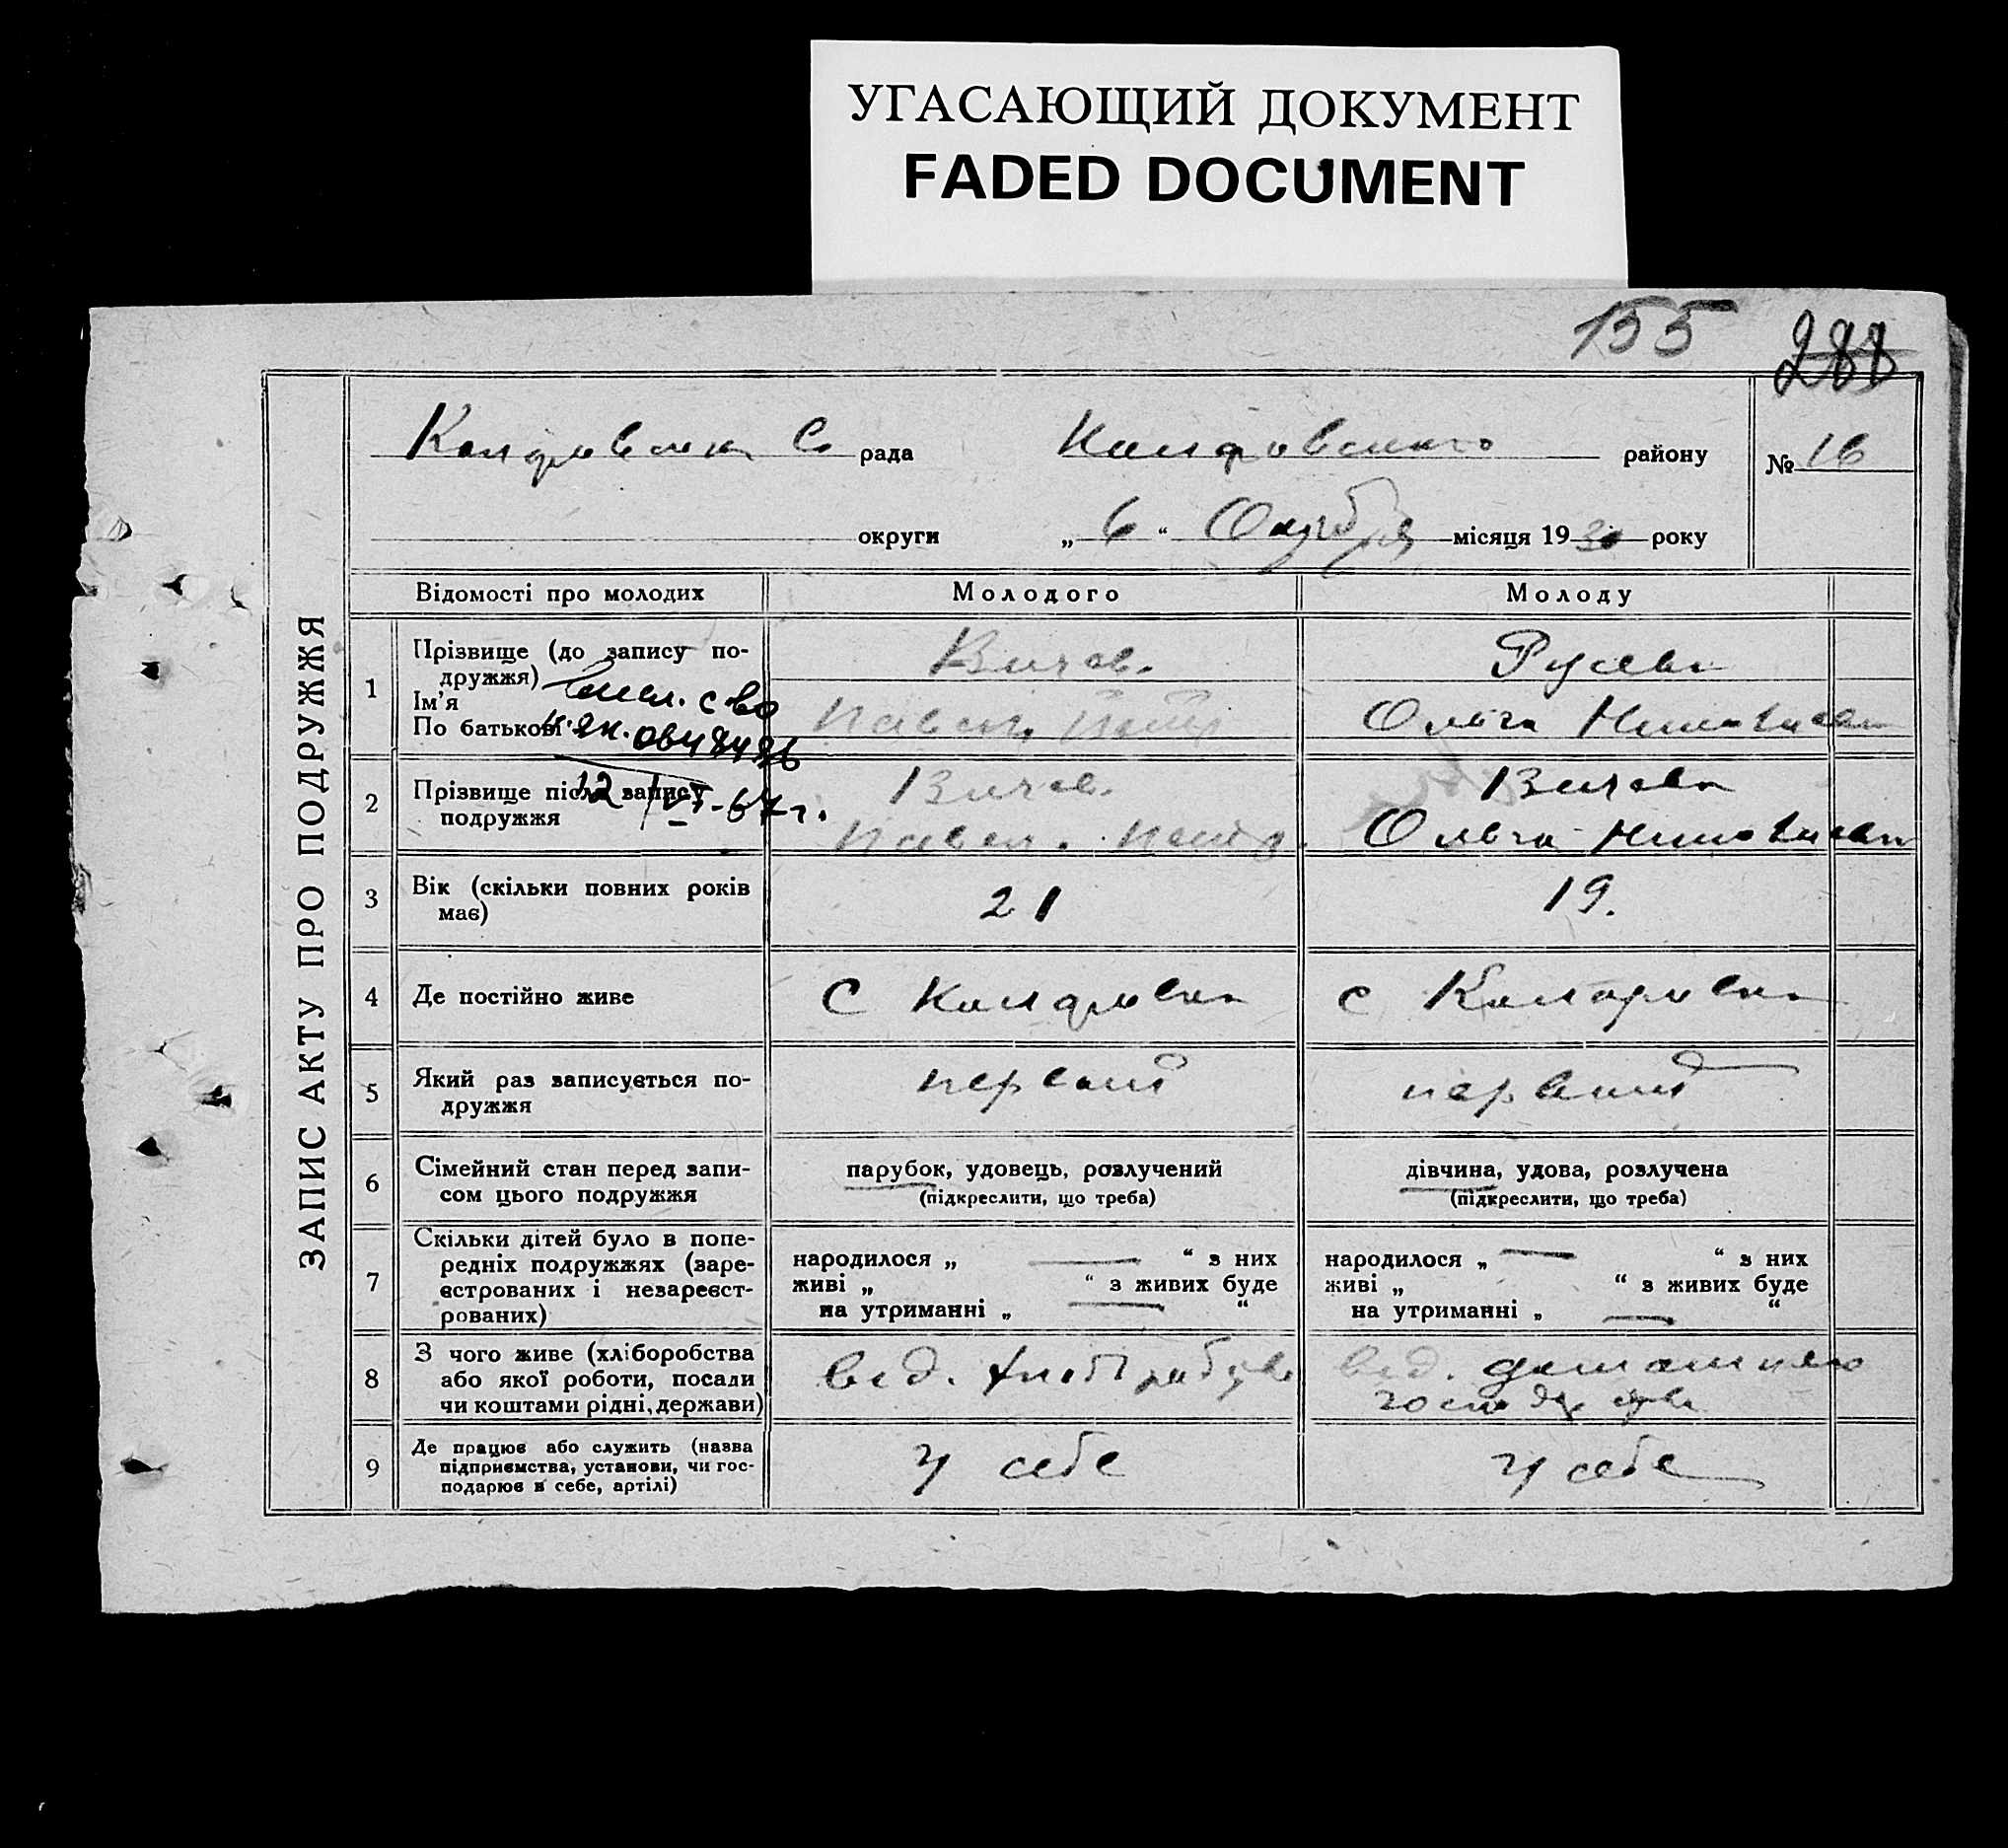 УГАСАЮЩИЙ ДОКУМЕНТ
FADED DOCUMENT
155 288
ЗАПИС АКТУ ПРО ПОДРУЖЖЯ
рада району № 16
округи „ 6 “ Октября місяця 1930 року
Відомості про молодих Молодого Молоду
1 Прізвище (до запису подружжя)
Ім'я
По батькові
Вичев. Русева
Павел Петр Ольга
12/VI-67г.
2 Прізвище після запису
подружжя
Вичев. Вичева
Павел. Петр. Ольга
3 Вік (скільки повних років
має)
21 19.
4 Де постійно живе с с
5 Який раз записується по-
дружжя
первий первий
6 Сімейний стан перед запи-
сом цього подружжя
парубок, удовець, розлучений дівчина, удова, розлучена
(підкреслити, що треба) (підкреслити, що треба)
7 Скільки дітей було в попе-
редніх подружжях (заре-
єстрованих і незареєст-
рованих)
народилося „ — “ з них народилося „ — “ з них
живі „ “ з живих буде живі „ “ з живих буде
на утриманні „ — “ на утриманні „ — “
8 З чого живе (хліборобства
або якої роботи, посади
чи коштами рідні, держави)
вед. вед. домашнею
9 Де працює або служить (назва
підприємства, установи, чи гос-
подарює в себе, артілі)
у себе у себе